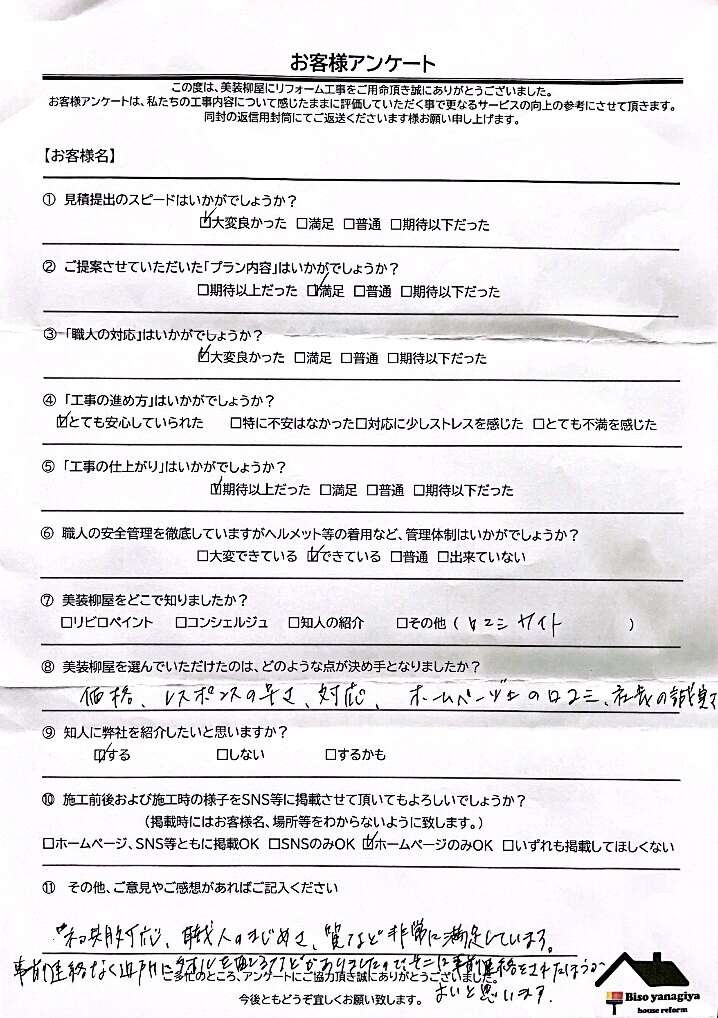 お客様アンケート
この度は、美装柳屋にリフォーム工事をご用命頂き誠にありがとうございました。
お客様アンケートは、私たちの工事内容について感じたままに評価していただく事で更なるサービスの向上の参考にさせて頂きます。
同封の返信用封筒にてご返送くださいます様お願い申し上げます。
【お客様名】
① 見積提出のスピードはいかがでしょうか?
☑大変良かった □満足 □普通 □期待以下だった
② ご提案させていただいた「プラン内容」はいかがでしょうか?
□期待以上だった ☑満足 □普通 □期待以下だった
③ 「職人の対応」はいかがでしょうか?
☑大変良かった □満足 □普通 □期待以下だった
④ 「工事の進め方」はいかがでしょうか?
☑とても安心していられた □特に不安はなかった □対応に少しストレスを感じた □とても不満を感じた
⑤ 「工事の仕上がり」はいかがでしょうか?
☑期待以上だった □満足 □普通 □期待以下だった
⑥ 職人の安全管理を徹底していますがヘルメット等の着用など、管理体制はいかがでしょうか?
□大変できている ☑できている □普通 □出来ていない
⑦ 美装柳屋をどこで知りましたか?
□リビロペイント □コンシェルジュ □知人の紹介 □その他 ( 口コミサイト )
⑧ 美装柳屋を選んでいただけたのは、どのような点が決め手となりましたか?
価格、レスポンスの早さ、対応、ホームページ上の口コミ、社長の誠実さ
⑨ 知人に弊社を紹介したいと思いますか?
☑する □しない □するかも
⑩ 施工前後および施工時の様子をSNS等に掲載させて頂いてもよろしいでしょうか?
(掲載時にはお客様名、場所等をわからないように致します。)
□ホームページ、SNS等ともに掲載OK □SNSのみOK ☑ホームページのみOK □いずれも掲載してほしくない
⑪ その他、ご意見やご感想があればご記入ください
対応、職人のまじめさ、質など非常に満足しています。
事前連絡なく近所に
ありましたので、そこは事前連絡をされたほうが
よいと思います。
ご多忙のところ、アンケートにご協力頂き誠にありがとうございました。
今後ともどうぞ宜しくお願い致します。
Biso yanagiya
house reform